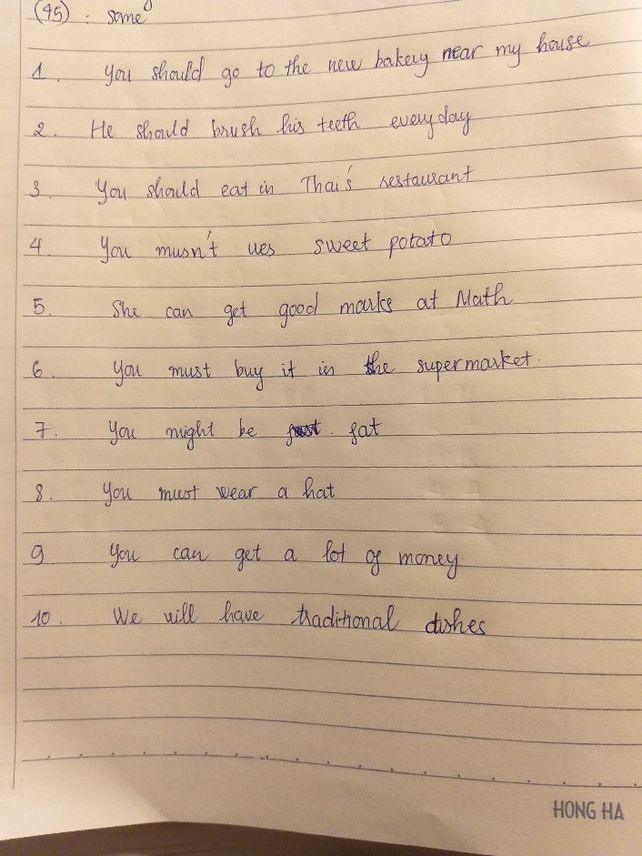 (45) : some
1. You should go to the new bakery near my house
2. He should brush his teeth everyday
3. You should eat in Thai's restaurant
4. You musn't ues sweet potato
5. She can get good marks at Math
6. You must buy it in the supermarket.
7. You might be fat
8. You must wear a hat
9 You can get a lot of money.
10. We will have traditional dishes
HONG HA